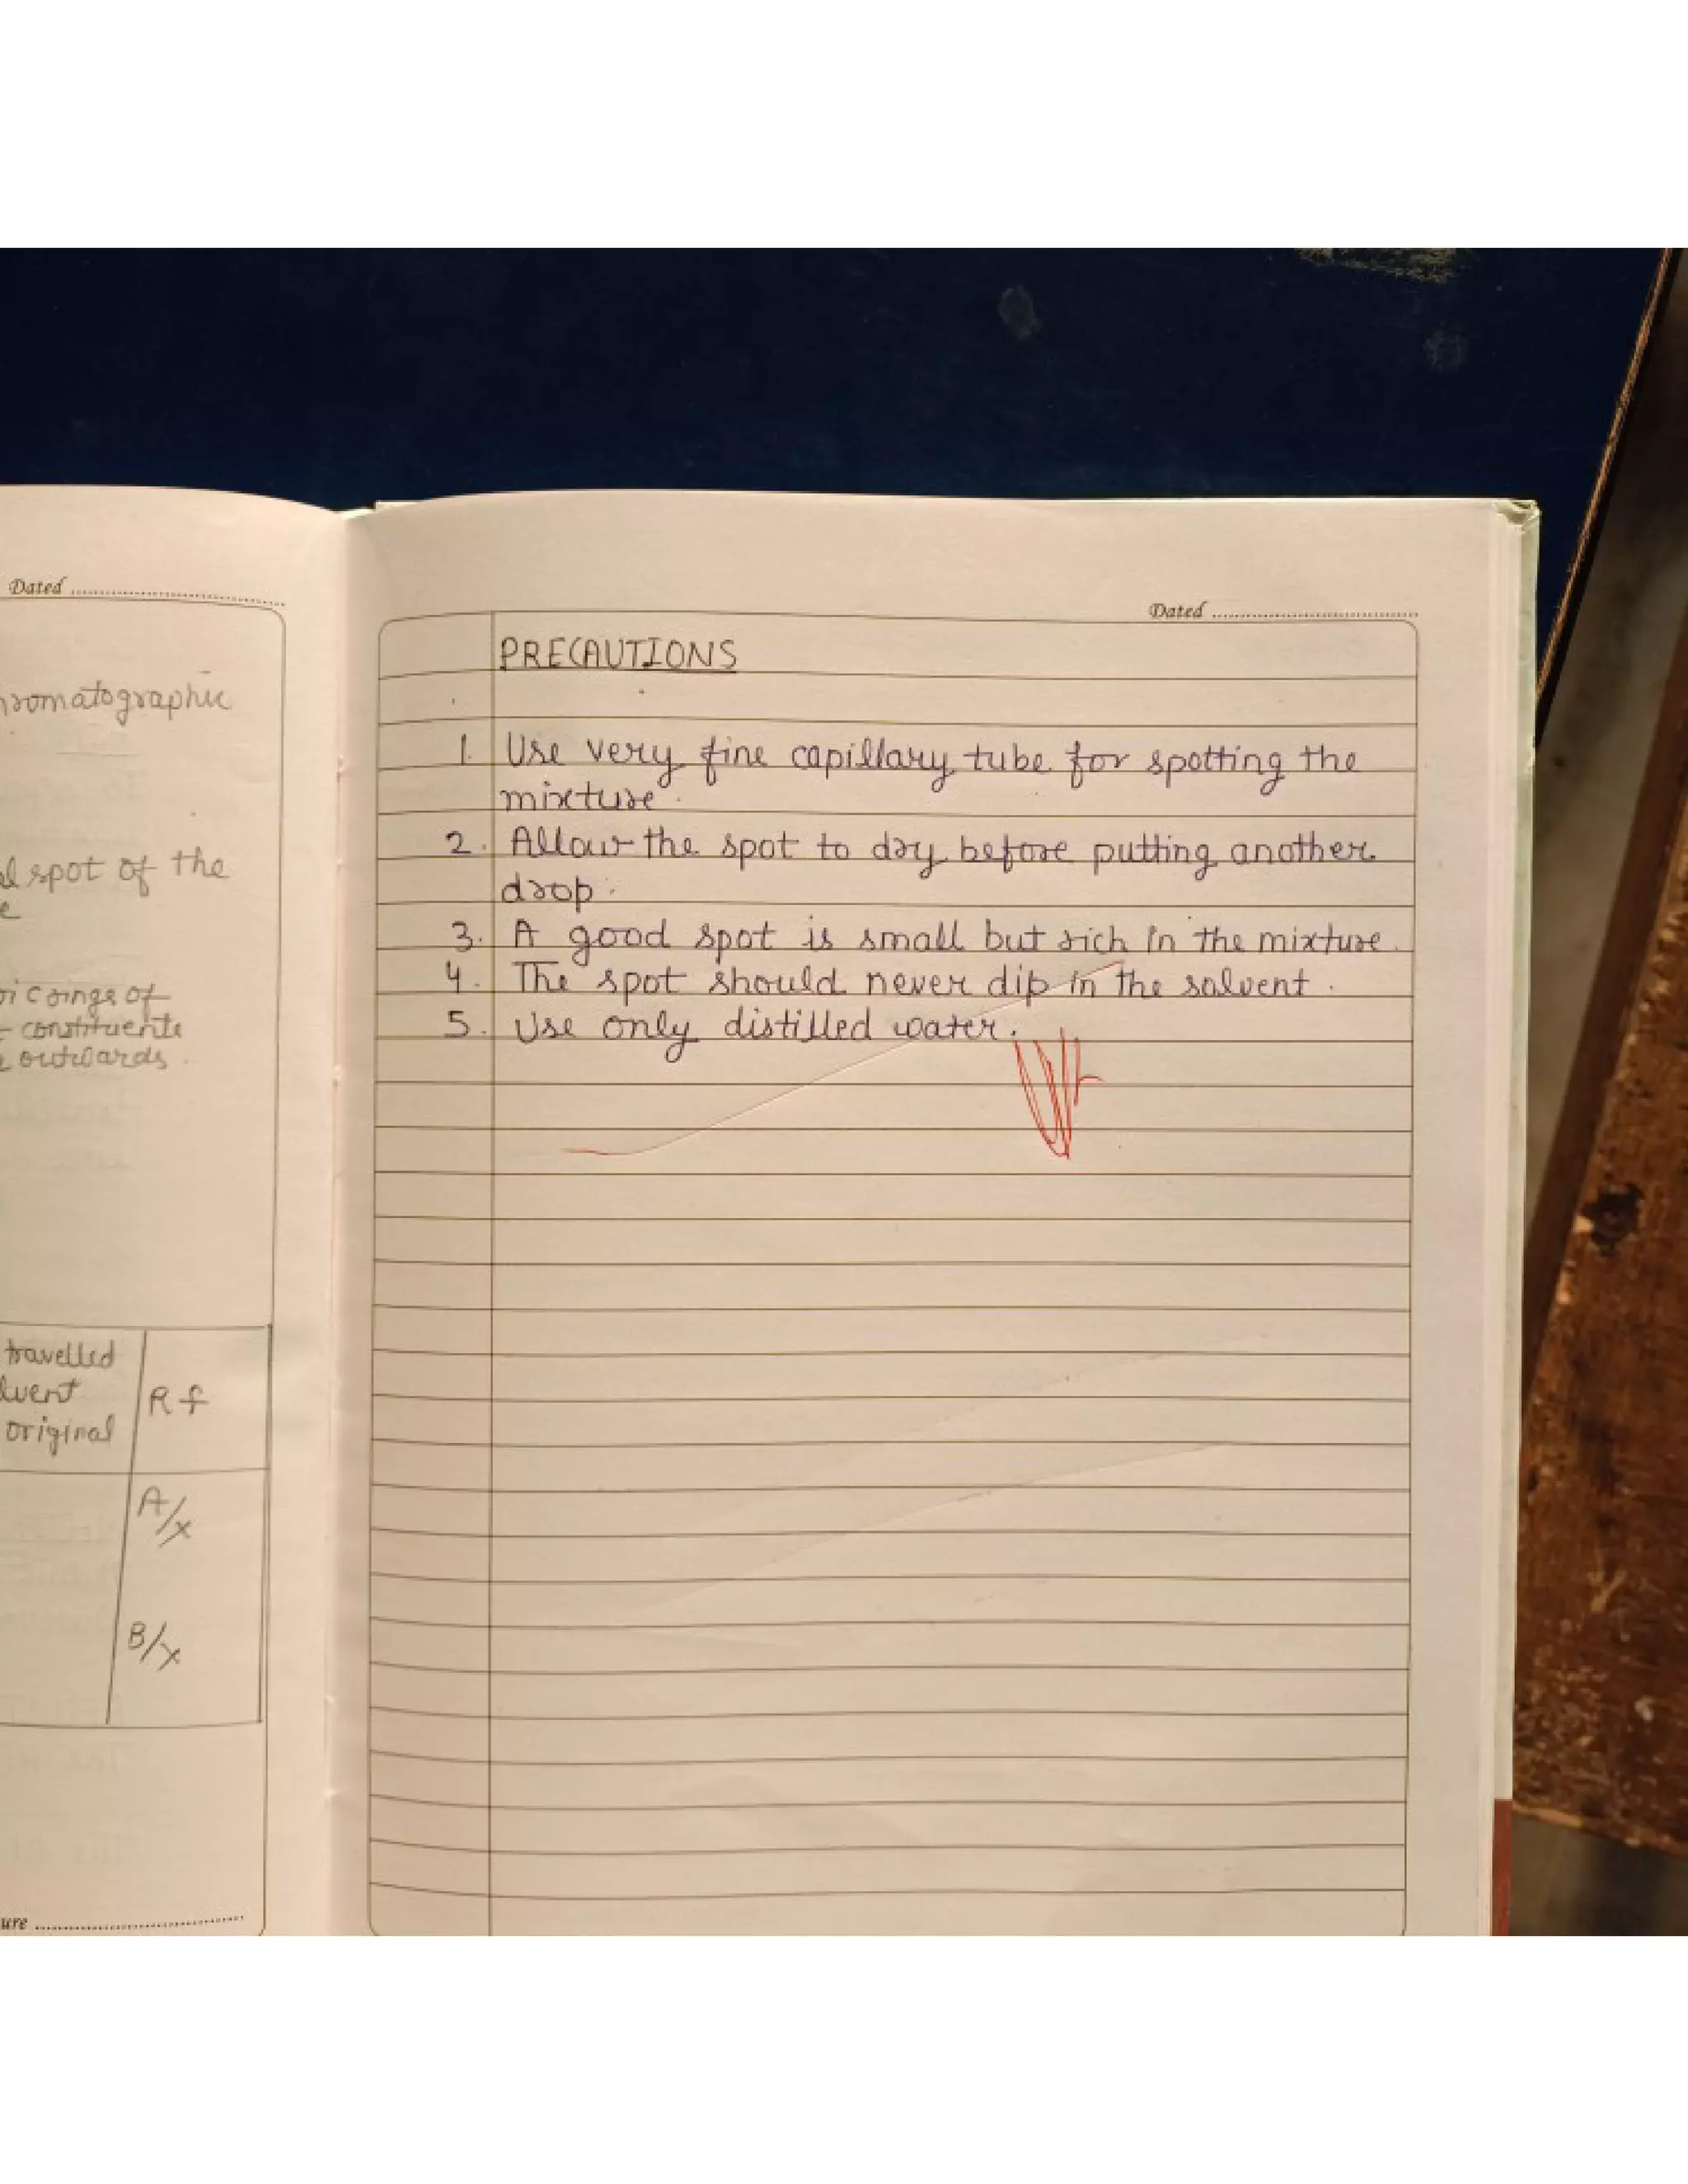 Dated
hromatographic
al spot of the
e
oicings of
constituents
outwards.
travelled
lvent
original
Rf
A/x
B/x
ure
Dated
PRECAUTIONS
1. Use very fine capillary tube for spotting the
mixture.
2. Allow the spot to dry before putting another
drop.
3. A good spot is small but rich in the mixture.
4. The spot should never dip in the solvent.
5. Use only distilled water.